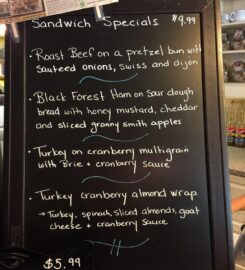 Sandwich Specials $9.99
• Roast Beef on a pretzel bun with
sauteed onions, swiss and dijon
• Black Forest Ham on sour dough
bread with honey mustard, cheddar
and sliced granny smith apples
• Turkey on cranberry multigrain
with Brie + cranberry sauce
• Turkey cranberry almond wrap
→ Turkey, spinach, sliced almonds, goat
cheese + cranberry sauce
$5.99